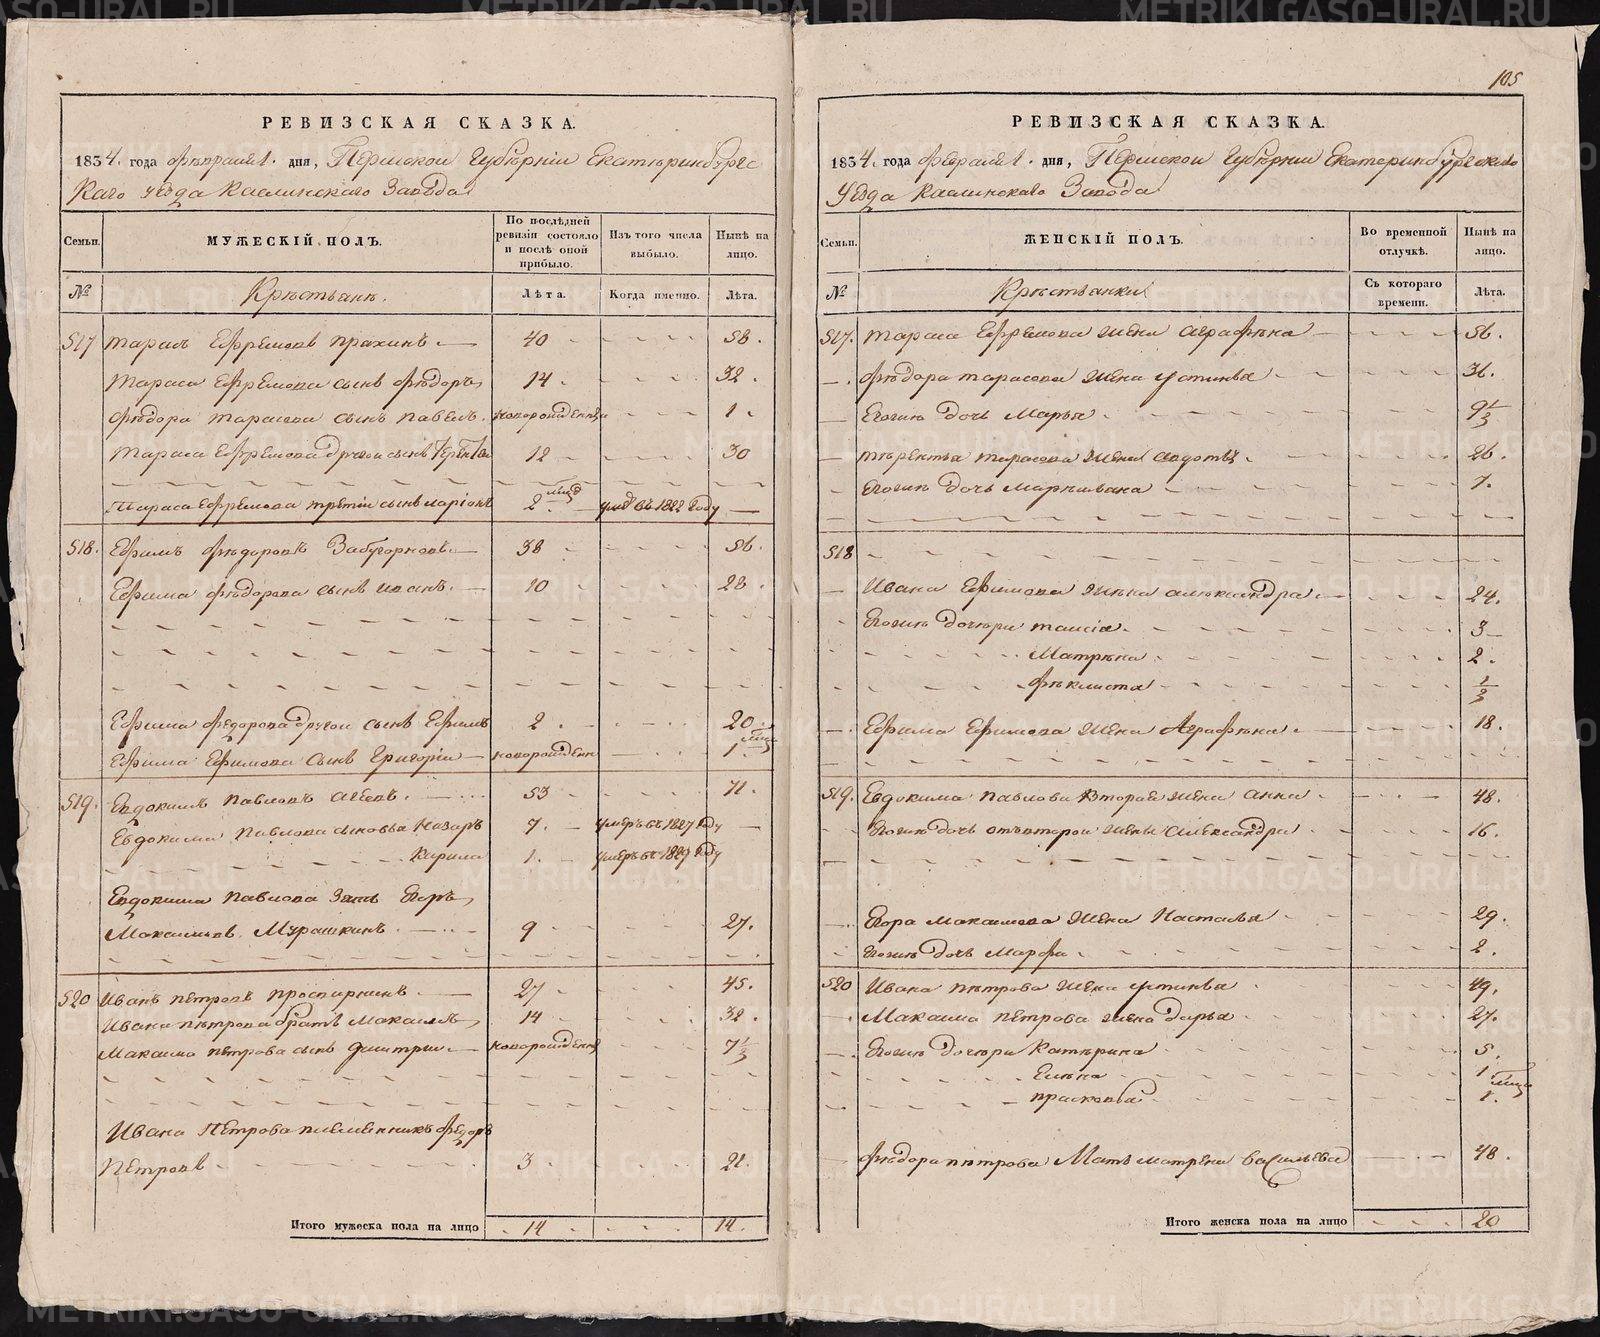 105
РЕВИЗСКАЯ СКАЗКА.
1834. года февраля 1. дня, Пермской Губерніи Екатеринбургс
каго уезда Каслинскаго Завода
Семьи.
МУЖЕСКІЙ ПОЛЪ.
По послѣдней ревизіи состояло и послѣ оной прибыло.
Изъ того числа выбыло.
Нынѣ на лицо.
№
Крѣстьянѣ.
Лѣта.
Когда именно.
Лѣта.
517 Тарасъ Ефремовъ 40 58.
Тараса Ефремова сынъ Фѣдоръ 14 32.
Фѣдора Тарасова сынъ Павелъ новорожденный 1.
Тараса Ефремова другой сынъ Терентій 12 30
Тараса Ефремова третій сынъ Ларіонъ 2 мѣс 1822 году
518. Ефимъ Фѣдоровъ 38 56.
Ефима Фѣдорова сынъ Иванъ. 10 28
Ефима Федорова другой сынъ Ефимъ 2. 20
Ефима Ефимова сынъ Григорій новорожден 1 мѣс
519. Евдокимъ Павловъ 53 71.
Евдокима Павлова сыновья Назаръ 7. умеръ въ 1827 году
Кирила 1. умеръ въ 1827 году
Евдокима Павлова зять Егоръ
Максимовъ Мурашкинъ. 9 27.
520 Иванъ Петровъ 27 45.
Ивана Петрова братъ Максимъ 14 32.
Максима Петрова сынъ Дмитрий новорожденный 7 1/3
Ивана Петрова племенникъ Федоръ
Петровъ 3 21.
Итого мужеска пола на лицо 14 14.
РЕВИЗСКАЯ СКАЗКА.
1834. года февраля 1. дня, Пермской Губернии Екатеринбургскаго
Уезда Каслинскаго Завода
Семьи.
ЖЕНСКІЙ ПОЛЪ.
Во временной отлучкѣ.
Нынѣ на лицо.
№
Крѣстьянки
Съ котораго времени.
Лѣта.
517. Тараса Ефремова жена Аграфѣна 56.
Фѣдора Тарасова жена Устинья 36.
Егожъ дочь Марья 9 1/3
Терентья Тарасова жена Авдотья 26.
Егожъ дочь 7.
518
Ивана Ефимова жена Александра 24.
Егожъ дочери Таисія 3
Матрѣна 2.
Фѣклиста 1/2
Ефима Ефимова жена Аграфѣна 18.
519. Евдокима Павлова вторая жена Анна 48.
Егожъ дочь отъ второй жены Александра 16.
Егора Максимова жена Насталья 29.
Егожъ дочь Марфа 2.
520 Ивана Пѣтрова жена Устинья 49.
Максима Петрова жена Дарья 27.
Егожъ дочери Катѣрина 5.
Елѣна 1
Прасковья 1. мѣс
Фѣдора Пѣтрова мать Матрена Васильева 48.
Итого женска пола на лицо 20